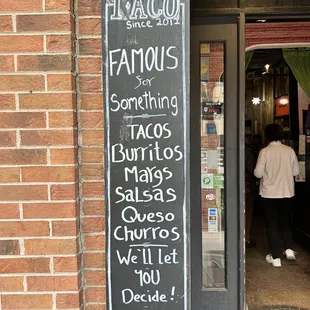 TACO
Since 2012
FAMOUS
for
Something
TACOS
Burritos
Margs
Salsas
Queso
Churros
We'll let
YOU
Decide!